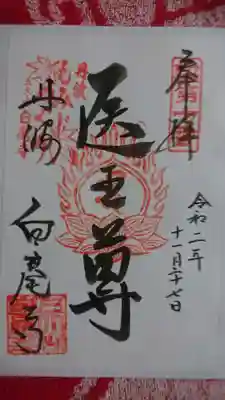 奉拝
令和二年
十一月二十七日
医王尊
丹波
白毫寺